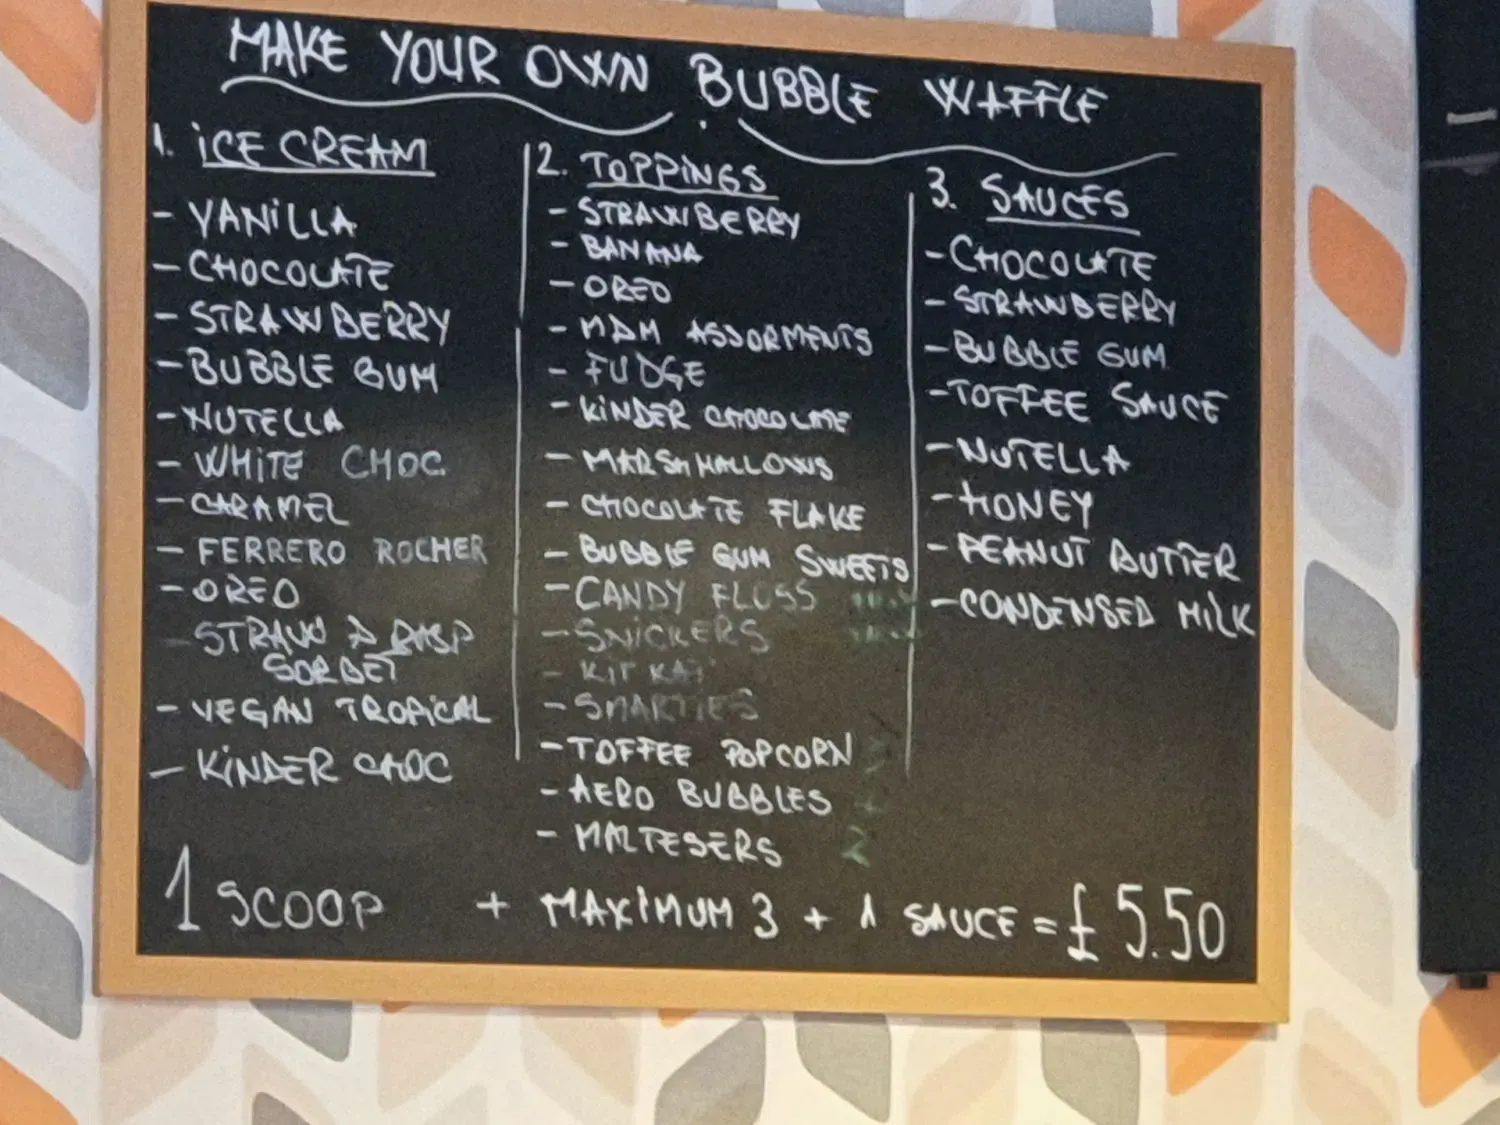 MAKE YOUR OWN BUBBLE WAFFLE
1. ICE CREAM
- VANILLA
- CHOCOLATE
- STRAWBERRY
- BUBBLE GUM
- NUTELLA
- WHITE CHOC
- CARAMEL
- FERRERO ROCHER
- OREO
STRAW & RASP
SORBET
- VEGAN TROPICAL
- KINDER CHOC
2. TOPPINGS
- STRAWBERRY
- BANANA
- OREO
- M&M ASSORMENTS
- FUDGE
- KINDER CHOCOLATE
- MARSHMALLOWS
- CHOCOLATE FLAKE
- BUBBLE GUM SWEETS
- CANDY FLOSS
- SNICKERS
- KIT KAT
- SMARTIES
- TOFFEE POPCORN
- AERO BUBBLES
- MALTESERS
3. SAUCES
- CHOCOLATE
- STRAWBERRY
- BUBBLE GUM
- TOFFEE SAUCE
- NUTELLA
- HONEY
- PEANUT BUTTER
- CONDENSED MILK
1 SCOOP + MAXIMUM 3 + 1 SAUCE = £5.50